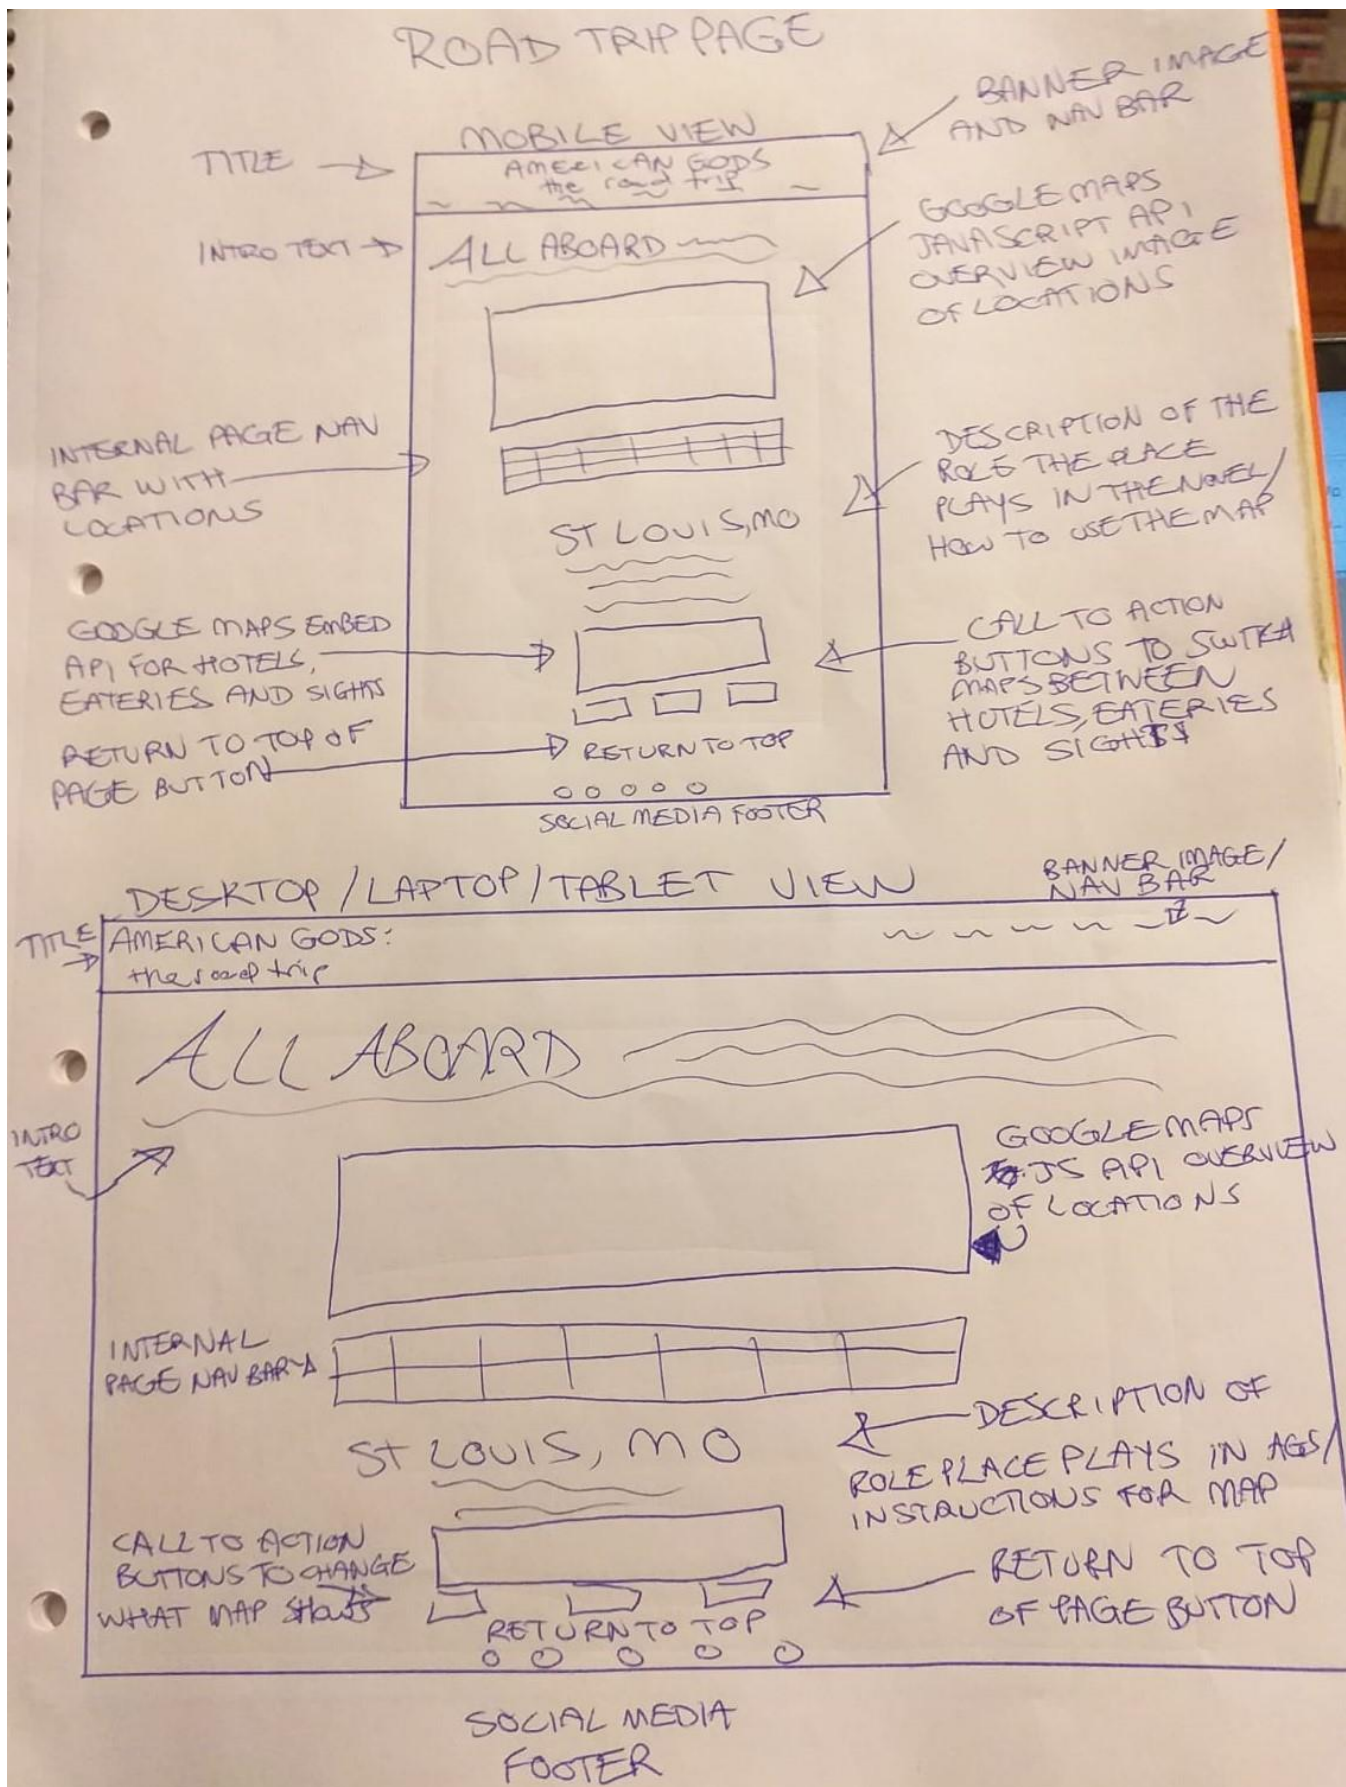 ROAD TRIP PAGE
MOBILE VIEW
BANNER IMAGE
AND NAV BAR
TITLE
AMERICAN GODS
the road trip
INTRO TEXT
ALL ABOARD
GOOGLE MAPS
JAVASCRIPT API
OVERVIEW IMAGE
OF LOCATIONS
INTERNAL PAGE NAV
BAR WITH
LOCATIONS
DESCRIPTION OF THE
ROLE THE PLACE
PLAYS IN THE NOVEL/
HOW TO USE THE MAP
ST LOUIS, MO
GOOGLE MAPS EMBED
API FOR HOTELS,
EATERIES AND SIGHTS
CALL TO ACTION
BUTTONS TO SWITCH
MAPS BETWEEN
HOTELS, EATERIES
AND SIGHTS
RETURN TO TOP OF
PAGE BUTTON
RETURN TO TOP
SOCIAL MEDIA FOOTER
DESKTOP/LAPTOP/TABLET VIEW
BANNER IMAGE/
NAV BAR
TITLE
AMERICAN GODS:
the road trip
ALL ABOARD
INTRO
TEXT
GOOGLE MAPS
JS API OVERVIEW
OF LOCATIONS
INTERNAL
PAGE NAV BAR
ST LOUIS, MO
DESCRIPTION OF
ROLE PLACE PLAYS IN AGS/
INSTRUCTIONS FOR MAP
CALL TO ACTION
BUTTONS TO CHANGE
WHAT MAP SHOWS
RETURN TO TOP
OF PAGE BUTTON
RETURN TO TOP
SOCIAL MEDIA
FOOTER